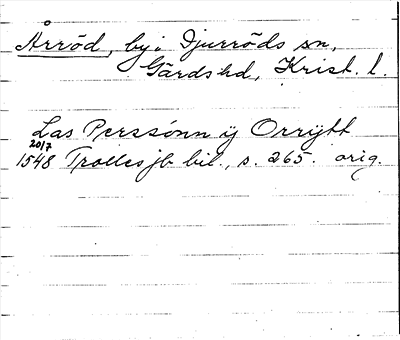 Årröd, by i Djurröds sn,
Gärds hd, Krist. l.
Las Perssónn ij Orrÿtt
20/7
1548 Trolles jb bil., s. 265. orig.